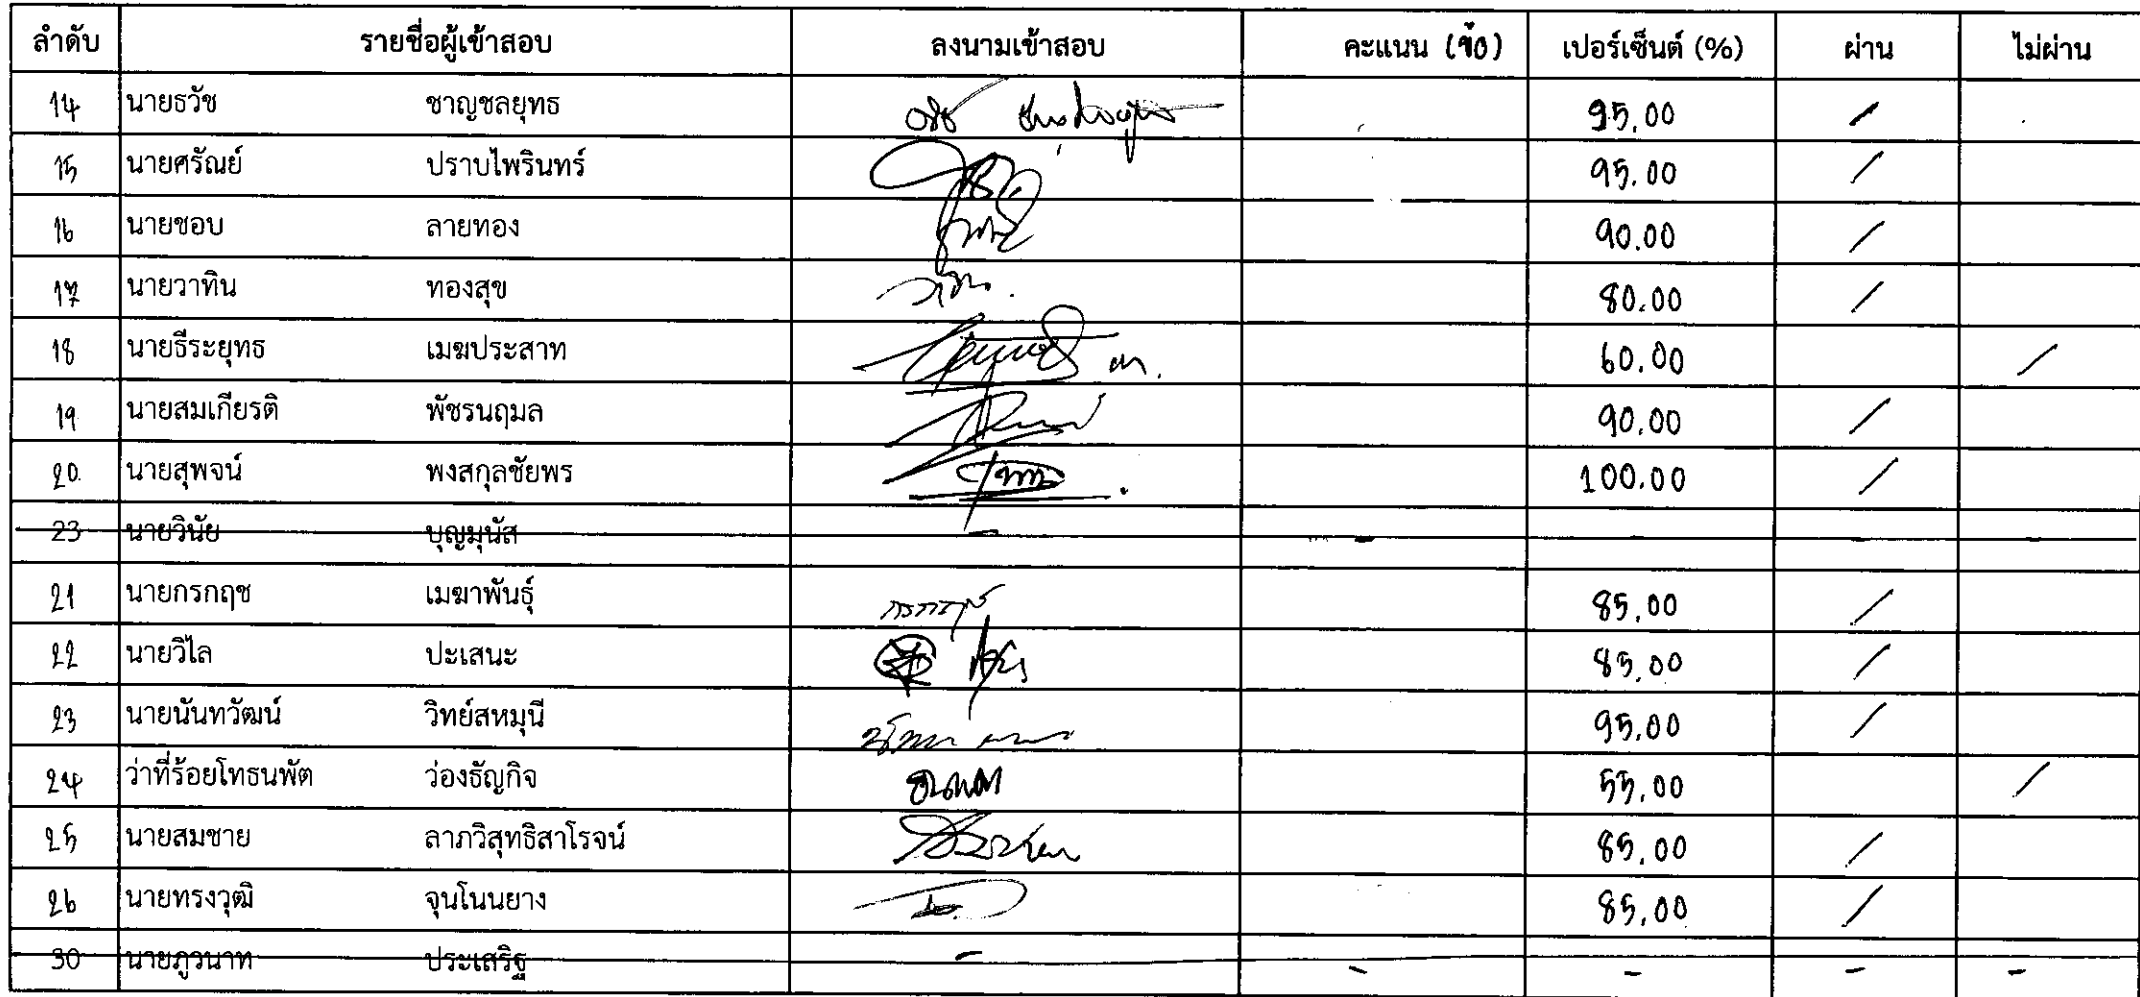 ลำดับ รายชื่อผู้เข้าสอบ ลงนามเข้าสอบ คะแนน (ข้อ) เปอร์เซ็นต์ (%) ผ่าน ไม่ผ่าน
14 นายธวัช ชาญชลยุทธ 95.00 /
15 นายศรัณย์ ปราบไพรินทร์ 95.00 /
16 นายชอบ ลายทอง 90.00 /
17 นายวาทิน ทองสุข 80.00 /
18 นายธีระยุทธ เมฆประสาท 60.00 /
19 นายสมเกียรติ พัชรนฤมล 90.00 /
20. นายสุพจน์ พงสกุลชัยพร 100.00 /
23 นายวินัย บุญมุนัส - - - - -
21 นายกรกฤช เมฆาพันธุ์ กรกฤช 85.00 /
22 นายวิไล ปะเสนะ 85.00 /
23 นายนันทวัฒน์ วิทย์สหมุนี 95.00 /
24 ว่าที่ร้อยโทธนพัต ว่องธัญกิจ ธนพัต 55.00 /
25 นายสมชาย ลาภวิสุทธิสาโรจน์ 85.00 /
26 นายทรงวุฒิ จุนโนนยาง 85.00 /
30 นายภูวนาท ประเสริฐ - - - - -